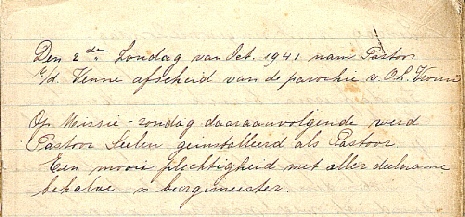 Den 2de Zondag van Oct. 1941 nam Pastoor
v/d. Venne afscheid van de parochie v. O.L. Vrouw
Op Missie-zondag daaraanvolgende werd
Pastoor Seelen geinstalleerd als Pastoor.
Een mooie plechtigheid met aller deelname
behalve burgemeester.